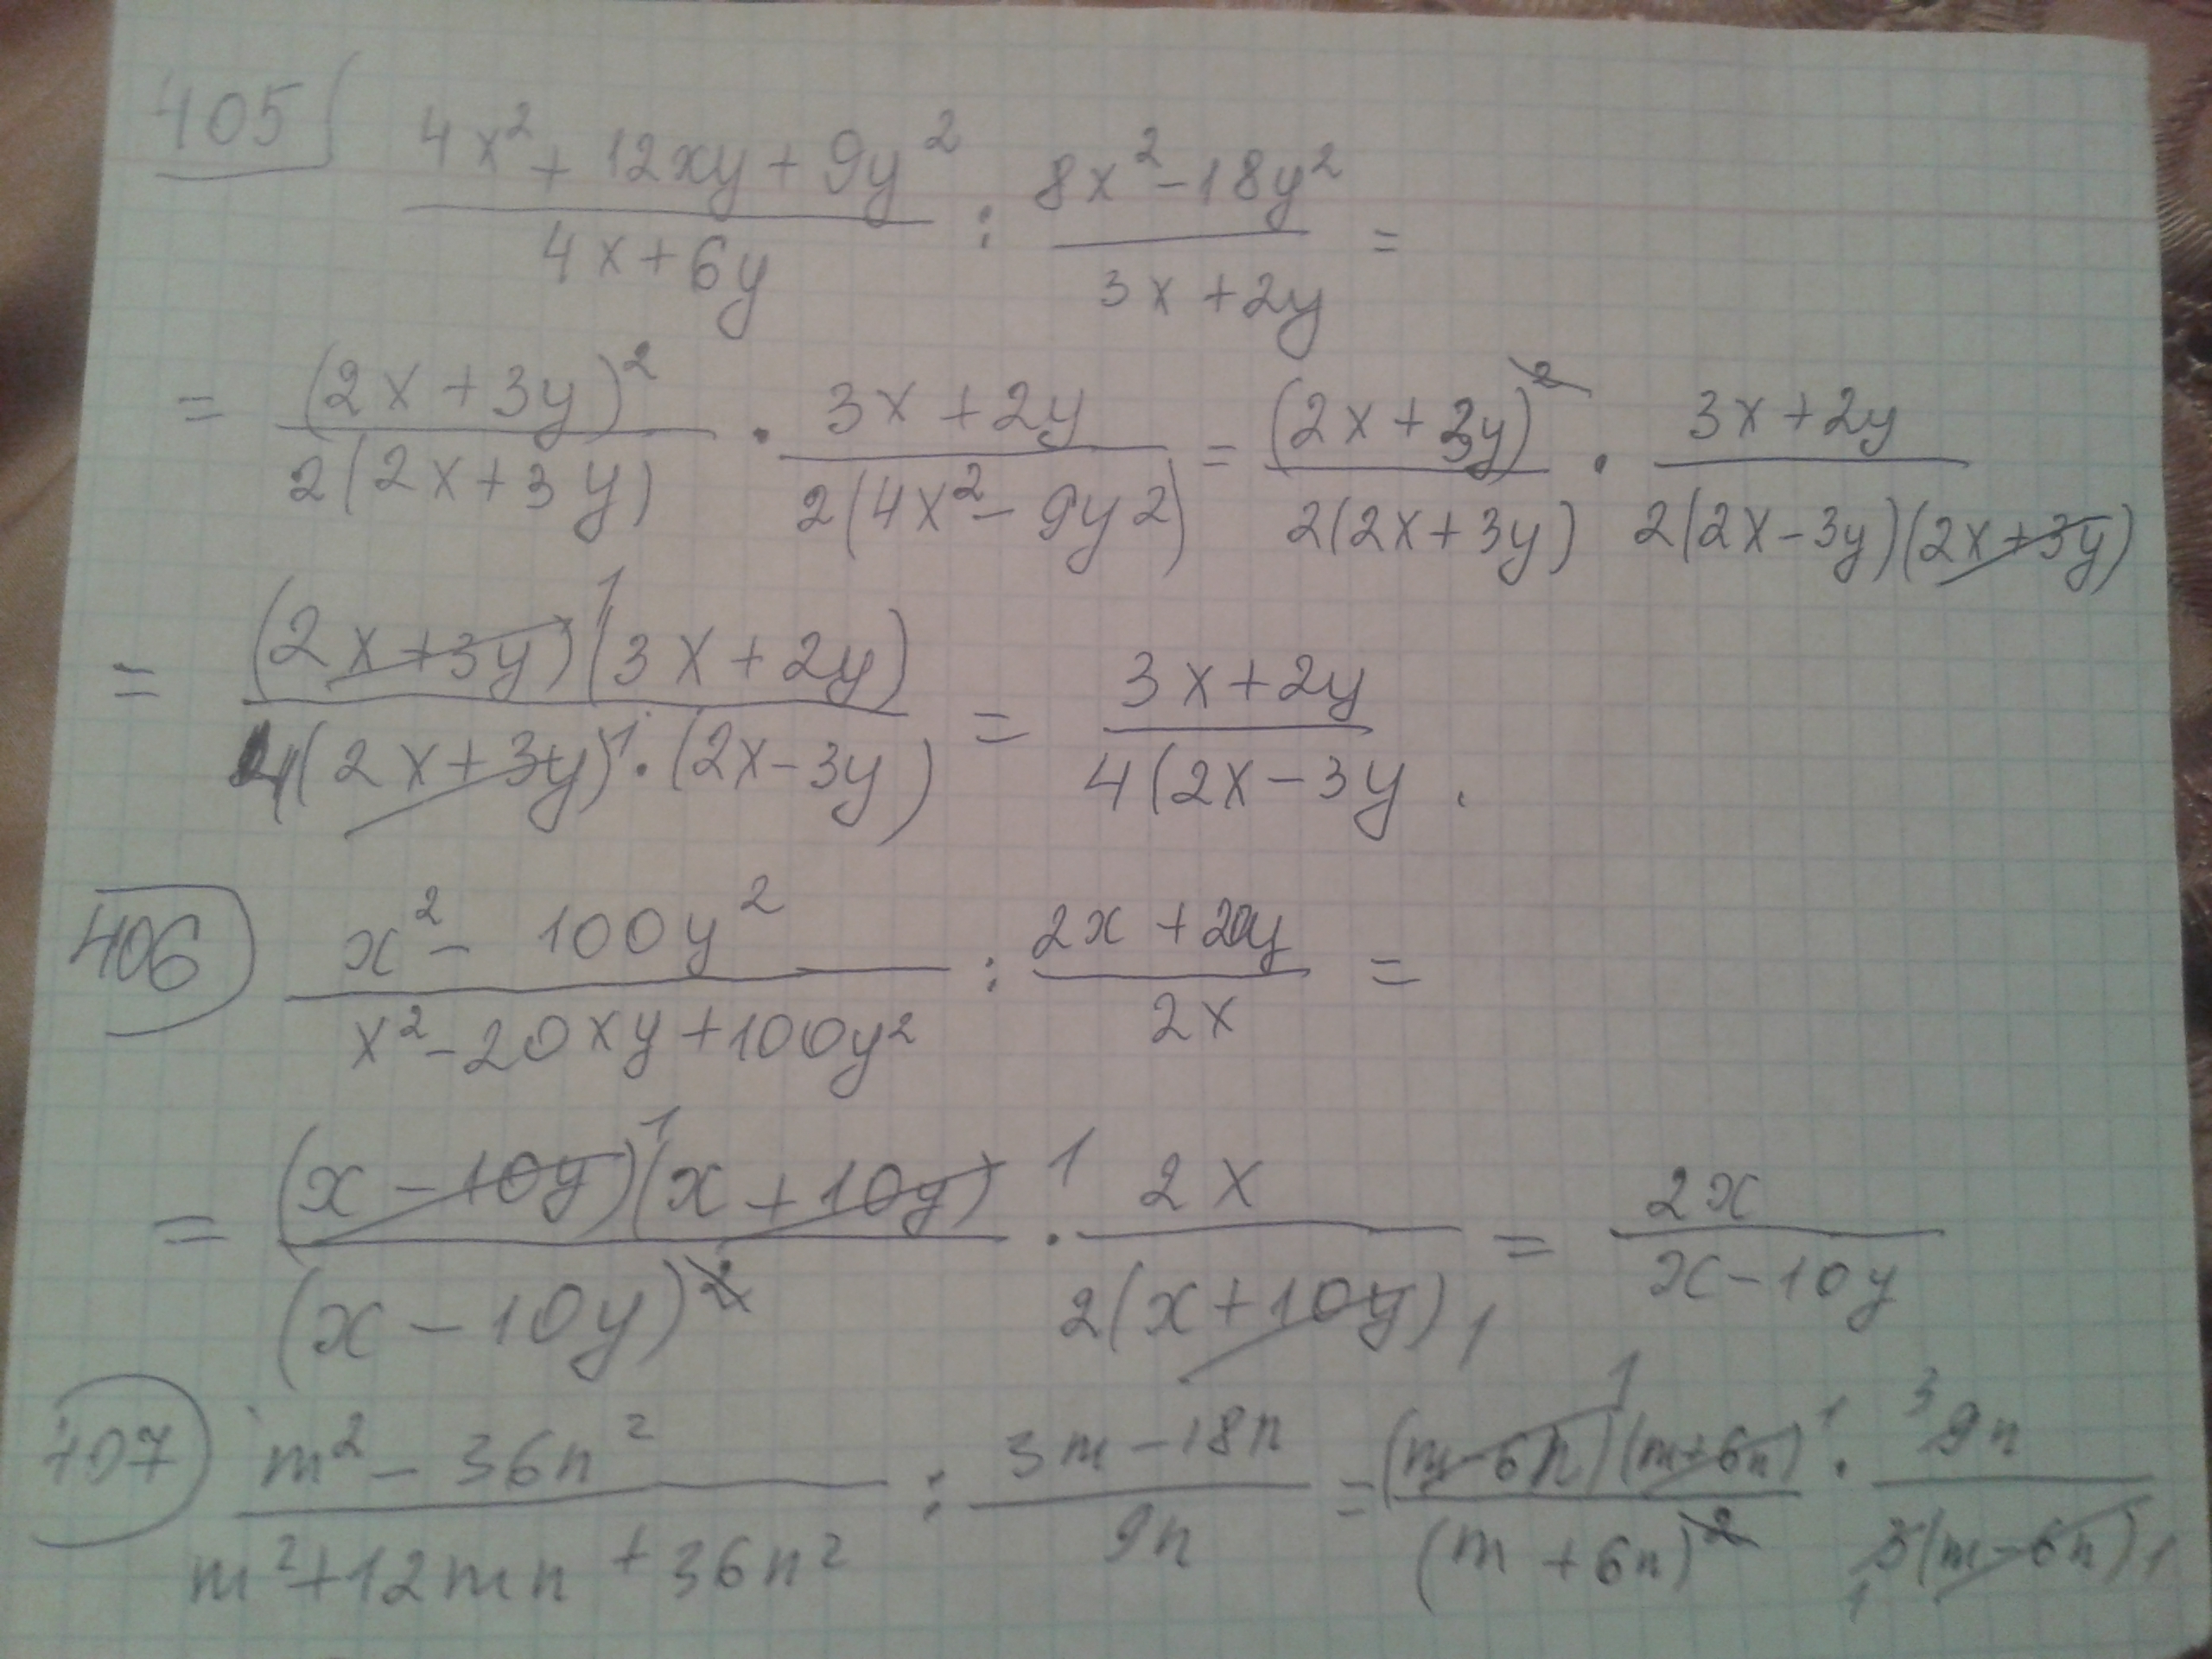 405 (4x² + 12xy + 9y²)/(4x + 6y) : (8x² - 18y²)/(3x + 2y) =
= (2x + 3y)²/(2(2x + 3y)) · (3x + 2y)/(2(4x² - 9y2)) = (2x + 3y)²/(2(2x + 3y)) · (3x + 2y)/(2(2x - 3y)(2x + 3y))
= ((2x + 3y)¹(3x + 2y))/(4(2x + 3y)¹ · (2x - 3y)) = (3x + 2y)/(4(2x - 3y .
406 (x² - 100y²)/(x² - 20xy + 100y²) : (2x + 20y)/(2x) =
= ((x - 10y)¹(x + 10y) 1)/((x - 10y)²) · (2x)/(2(x + 10y) 1) = (2x)/(x - 10y)
407 (m² - 36n²)/(m² + 12mn + 36n²) : (3m - 18n)/(9n) = ((m - 6n)¹(m + 6n)¹)/((m + 6n)²) · (³9n)/(₁3(m - 6n) 1)